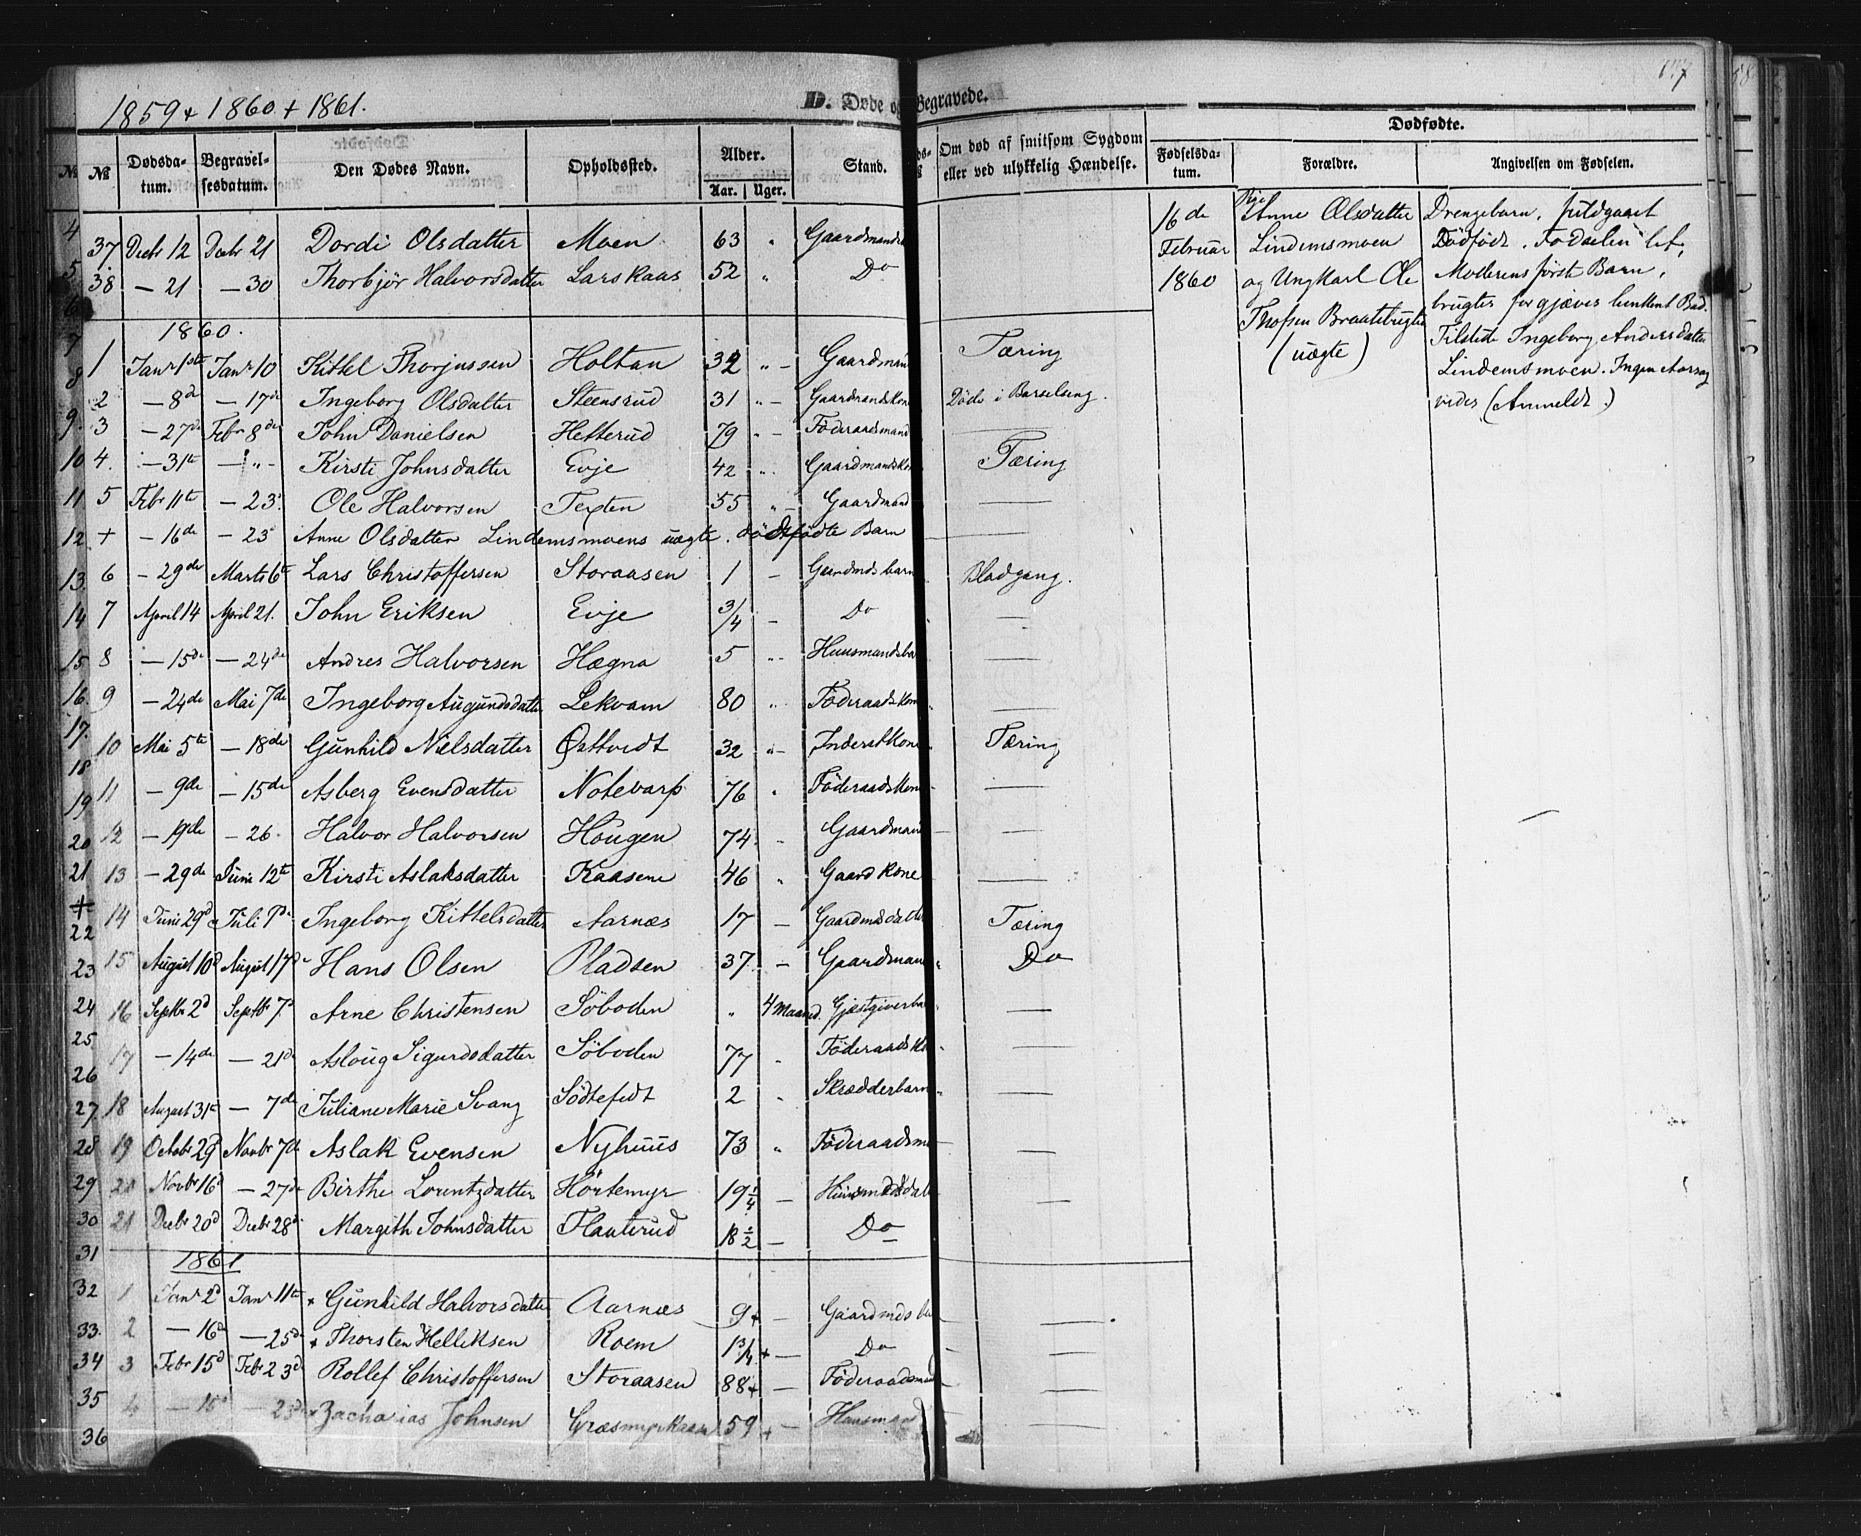 177
1859 + 1860 + 1861.
D. Døde og Begravede.
№ № Dødsdatum. Begravelsesdatum. Den Dødes Navn. Opholdssted. Alder. Aar. Uger. Stand. Om død af smitsom Sygdom eller ved ulykkelig Hændelse. Dødfødte. Fødselsdatum. Forældre. Angivelsen om Fødselen.
37 Decbr 12 Decbr 21 Dordi Olsdatter Moen 63 " Gaardmandsk
38 — 21 — 30 Thorbjör Halvorsdatter Larskaas 52 " Do
1860.
1 Janr 1ste Janr 10 Kittel Thorjussen Holtan 32 " — Gaardman Tæring
2 — 8d — 17de Ingeborg Olsdatter Steensrud 31 " — Gaardmandskone Döde i Barselseng.
3 — 27de Febr 8de John Danielsen Hetterud 79 " — Föderaadsmand —
4. — 31te — " — Kirsti Johnsdatter Evje 42 " Gaardmandskon Tæring
5 Febr 11te — 23. Ole Halvorsen Texten 55 " Gaardmand —
+ — 16de — 23 Anne Olsdatter Lindemsmoens uægte. dödfödte Barn —
6 — 29de Marts 6te Lars Christoffersen Storaasen 1 — Gaardmdsbarn Blodgang.
7 April 14 April 21. John Eriksen Evje 3/4 — Do —
8 — 15de — 24de Andres Halvorsen Hægna 5 " Huusmandsba —
9 — 24de Mai 7de Ingeborg Augundsdatter Lekvam 80 " Föderaadskone —
10 Mai 5te — 18de Gunhild Nielsdatter Østtvedt 32 " — Inderstkone Tæring
11 — 9de — 15de Asberg Evensdatter Notevarp 76 " Föderaadskone —
12 — 19de — 26. Halvor Halvorsen Hougen 74 " Gaardman —
13 — 29de Juni 12te Kirsti Aslaksdatter Kaasene 46 " Gaardkone —
14 Juni 29d Juli 7de Ingeborg Kittelsdatter Aarnæs 17 — Gaardmdsdatter Tæring
15 August 10d August 17d Hans Olsen Pladsen 37 — Gaardman Do
16 Septbr 2d Septbr 7d Arne Christensen Söboden " 4 Maaned. Gjestgiverba —
17 — 14de — 21de Asloug Sigurdsdatter Söboden 77 " Föderaadsko —
18 August 31te — 7de Juliane Marie Svang Södtefedt 2 " Skrædderbarn —
19 Octobr 29 Novbr 7de Aslak Evensen Nyhuus 73 " Föderaadsm —
20 Novbr 16d — 27de Birthe Lorentzdatter Hörtemyr 19 1/4 — Huusmdsdat —
21 Decbr 20d Decbr 28d Margith Johnsdatter Flaaterud 18 1/2 — Do —
1861
1 Janr 2d Janr 11te + Gunhild Halvorsdatter Aarnæs 9 + — Gaardmdsba —
2 — 16d — 25de + Thorsten Helleksen Roem 1 3/4 + — Do —
3 Febr 15d Febr 23d Rollef Christoffersen Storaasen 88 + — Föderaadsman —
4 — 15d — 23de + Zacharias Johnsen 59 + — Huusman
4
5
6
7
8
9.
10
11
12
13
14
15
16.
17.
18
19
20
21
+
22
23
24
25
26
27.
28
29
30
31
32
33.
34
35
36
16de Februar 1860
Pige Anne Olsdatter
Lindemsmoen
og Ungkarl Ole
Braatebrugte
(uægte)
Drengebarn, fuldgaaet
Dödfödt. Födselen let,
Moderens förste Barn,
brugtes forgjæves
Tilstede Ingeborg Andersdatter
Lindemsmoen. Ingen Aarsag
vides (Anmeldt.)